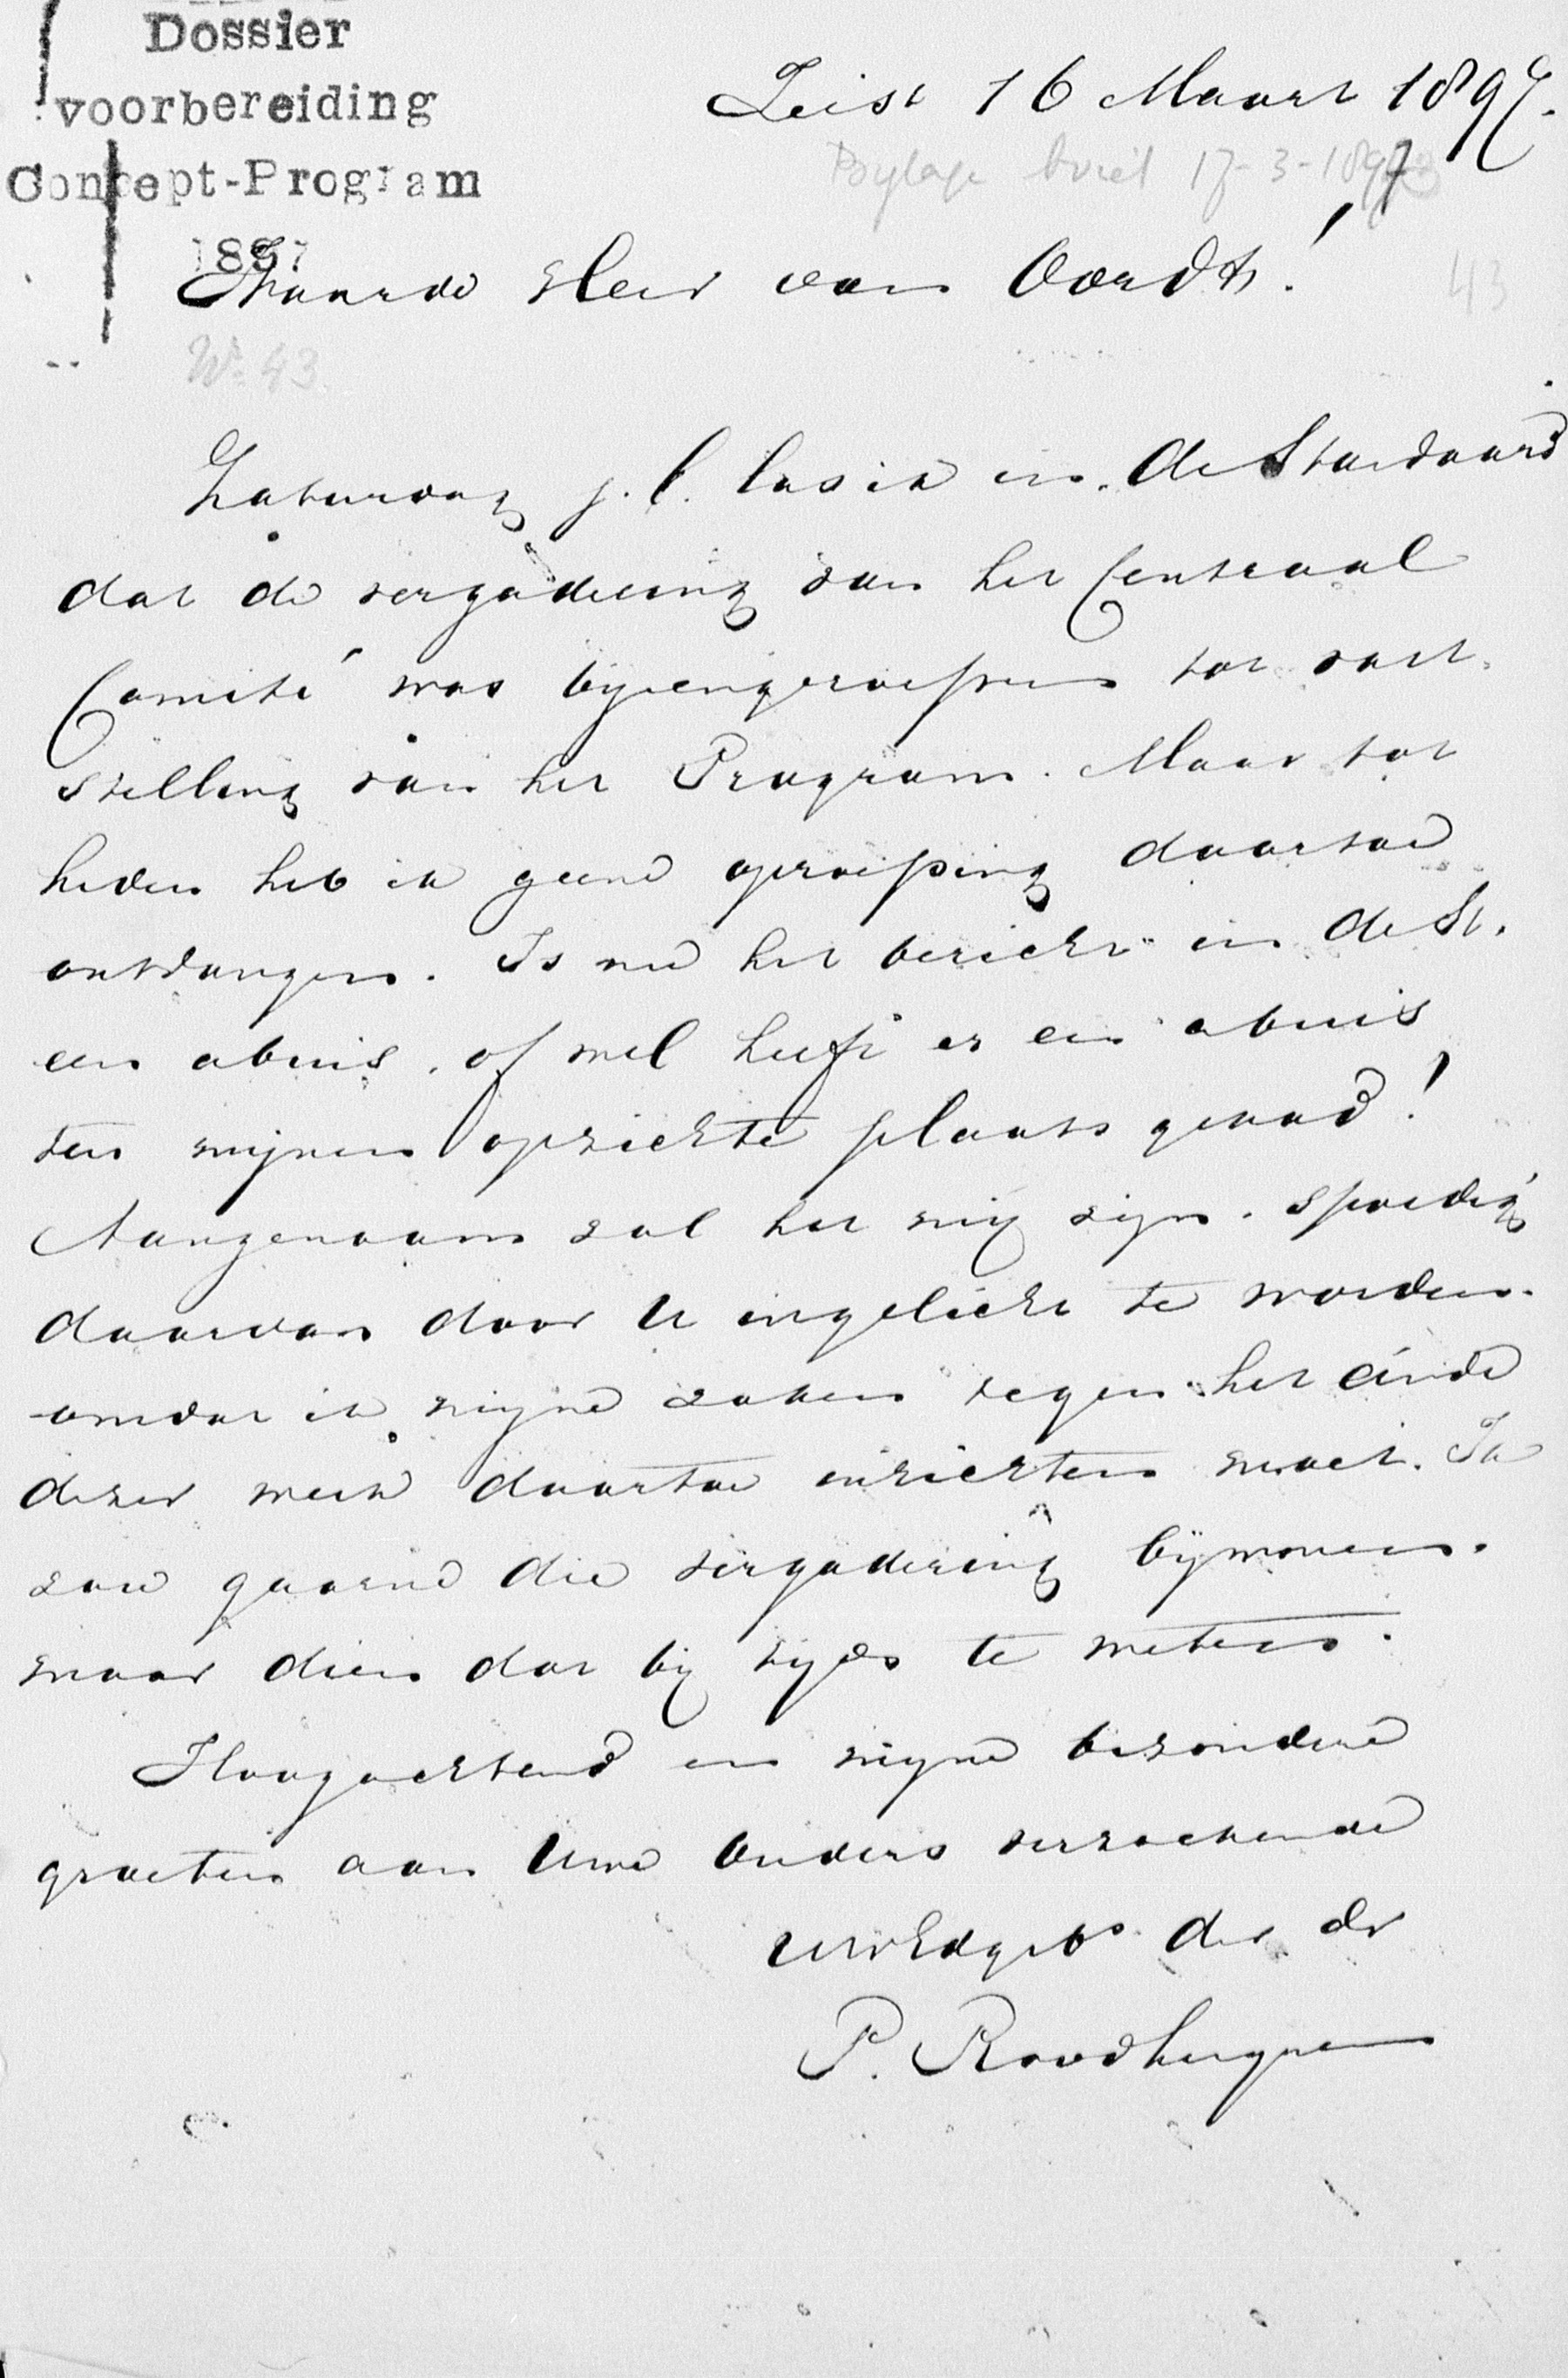 Dossier
voorbereiding
Concept-Program
1897
Zeist 16 Maart 1897.
Bylage brief 17-3-1897
Waarde Heer van Oordt!
43
No. 43
Zaturdag j.l. las ik in de Standaard
dat de vergadering van het Centraal
Comité was byeengeroepen tot vast-
stelling van het Program. Maar tot
heden heb ik geene oproeping daartoe
ontvangen. Is nu het bericht in de St.
een abuis, of wel heeft er een abuis
ten mijnen opzichte plaats gehad!
Aangenaam zal het mij zijn, spoedig
daarvan door U ingelicht te worden.
omdat ik mijne zaken tegen het einde
dezer week daartoe inrichten moet. Ik
zou gaarne die vergadering bijwonen.
maar dien dat bij tijds te weten.
Hoogachtend en mijne bizondere
groeten aan Uwe Ouders verzoekende
UwEdgeb. der dr
P. Roodhuyzen